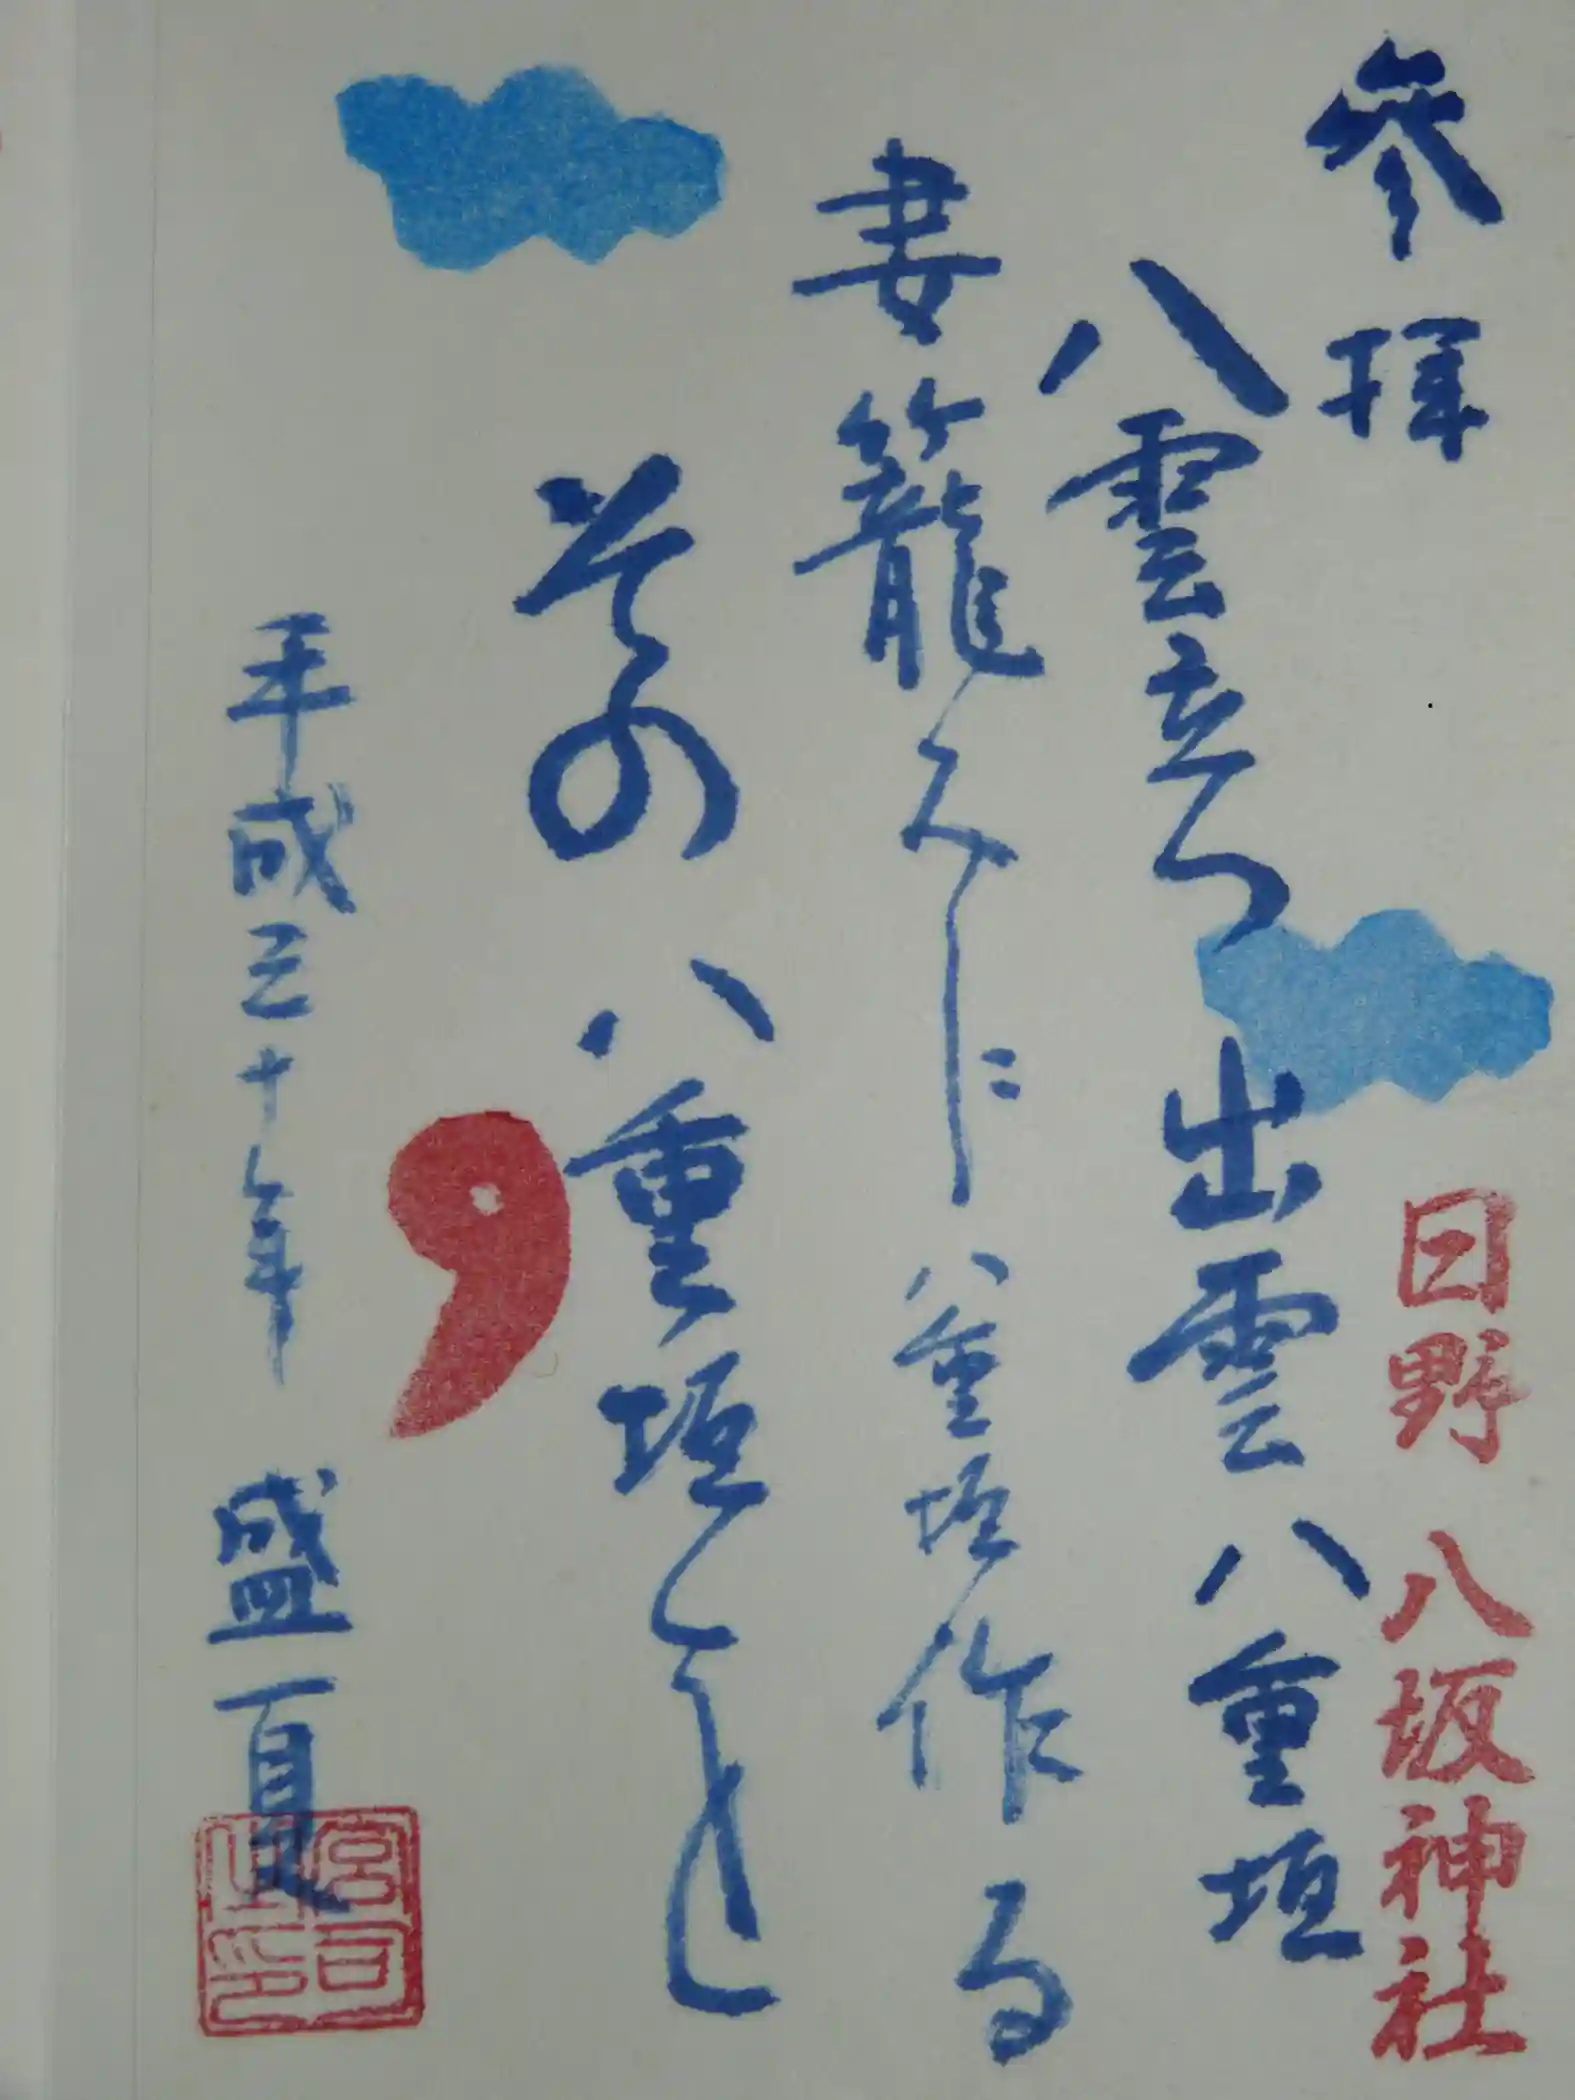 參拜
八雲立つ出雲八重垣
妻籠みに八重垣作る
その八重垣を
平成三十年 盛夏
日野 八坂神社
宮司之印